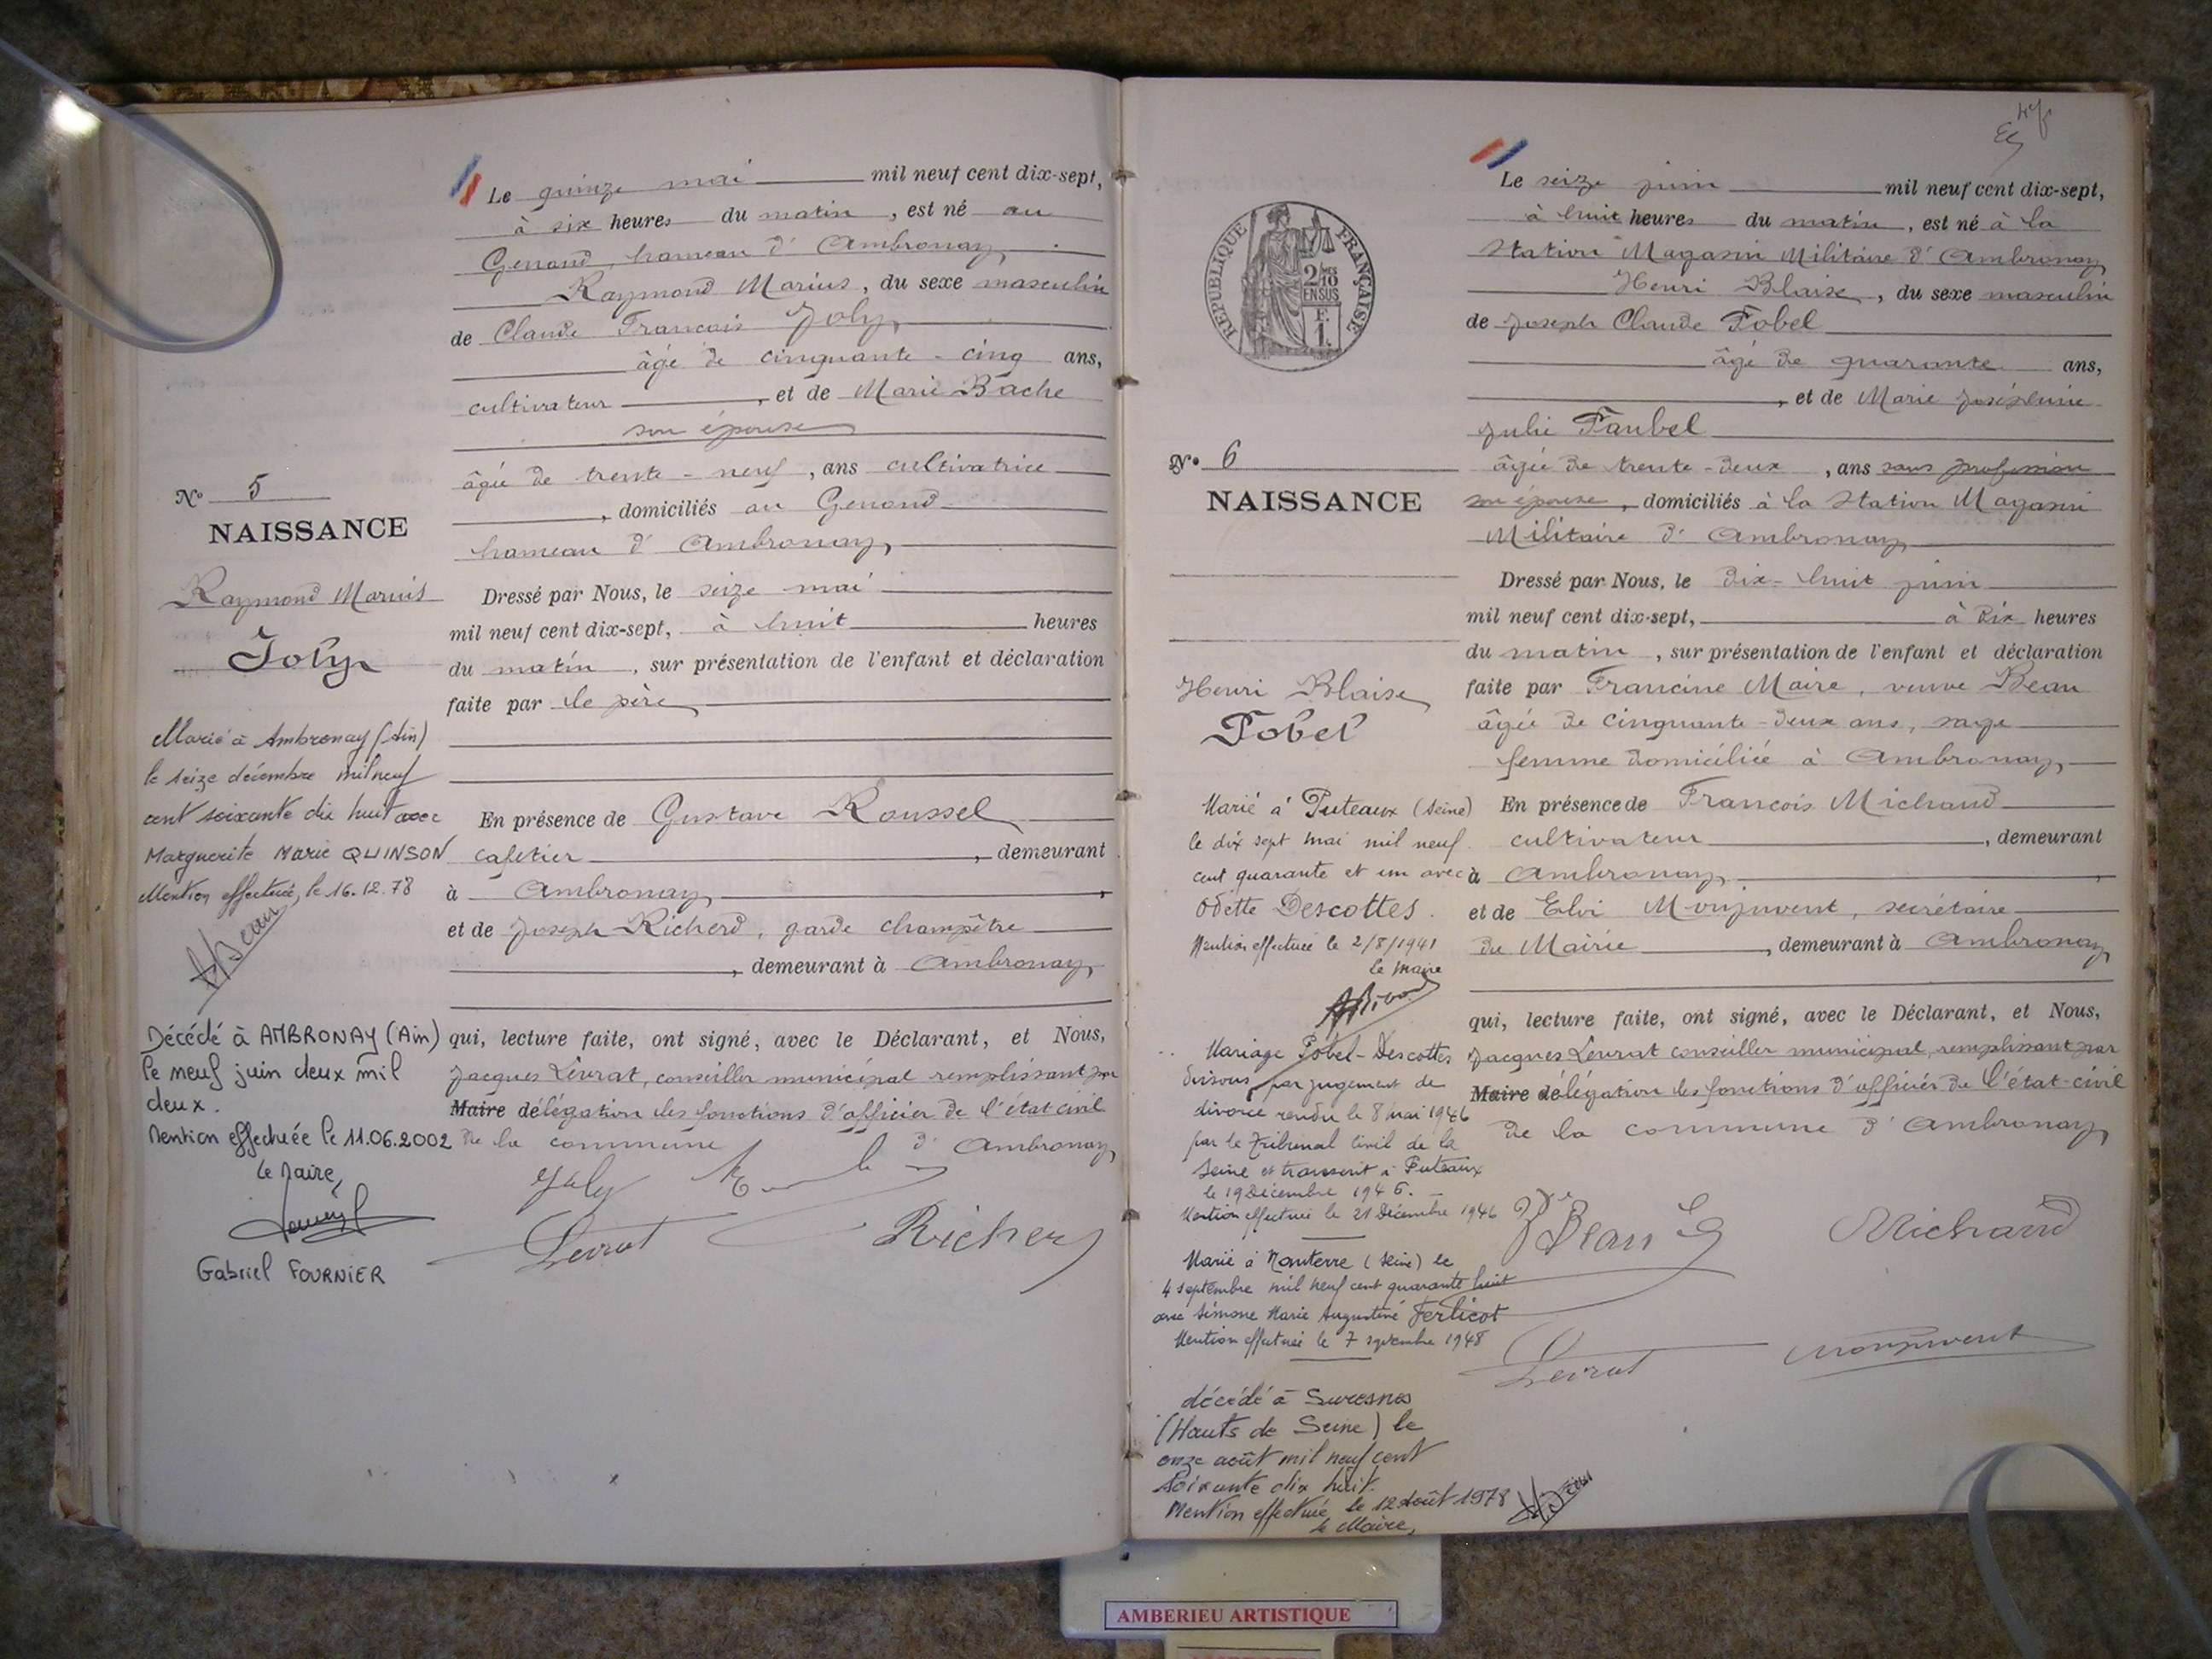 Le quinze mai mil neuf cent dix-sept,
à six heures du matin, est né au
Genoud, hameau d'Ambronay,
Raymond Marius, du sexe masculin
de Claude François Joly,
âgé de cinquante-cinq ans,
cultivateur, et de Marie Bache
son épouse
âgée de trente-neuf, ans cultivatrice
, domiciliés au Genoud
hameau d'Ambronay,
Dressé par Nous, le seize mai
mil neuf cent dix-sept, à huit heures
du matin, sur présentation de l'enfant et déclaration
faite par le père
En présence de Gustave Roussel
cafetier, demeurant
à Ambronay,
et de Joseph Richerd, garde champêtre
, demeurant à Ambronay,
qui, lecture faite, ont signé, avec le Déclarant, et Nous,
Jacques Levrat, conseiller municipal remplissant par
Maire délégation les fonctions d'officier de l'état civil
de la commune d'Ambronay,
Joly
Levrat
Richerd
No 5
NAISSANCE
Raymond Marius
Joly
Marié à Ambronay (Ain)
le seize décembre mil neuf
cent soixante dix huit avec
Marguerite Marie QUINSON
Mention effectuée, le 16.12.78
Décédé à AMBRONAY (Ain)
le neuf juin deux mil
deux.
Mention effectuée le 11.06.2002
Le Maire,
Gabriel FOURNIER
Le seize juin mil neuf cent dix-sept,
à huit heures du matin, est né à la
Station Magasin Militaire d'Ambronay
Henri Blaise, du sexe masculin
de Joseph Claude Fobel
âgé de quarante ans,
, et de Marie Joséphine
Julie Faubel
âgée de trente-deux, ans sans profession
son épouse, domiciliés à la Station Magasin
Militaire d'Ambronay
Dressé par Nous, le dix-huit juin
mil neuf cent dix-sept, à dix heures
du matin, sur présentation de l'enfant et déclaration
faite par Francine Maire, veuve Beau
âgée de cinquante-deux ans, sage
femme domiciliée à Ambronay,
En présence de François Michaud
cultivateur, demeurant
à Ambronay,
et de Elvi Monjuvent, secrétaire
de Mairie, demeurant à Ambronay,
qui, lecture faite, ont signé, avec le Déclarant, et Nous,
Jacques Levrat conseiller municipal, remplissant par
Maire délégation les fonctions d'officier de l'état-civil
de la commune d'Ambronay,
Ve Beau
Michaud
Levrat
Monjuvent
REPUBLIQUE FRANÇAISE
2/10 EN SUS
F.
1.
No 6
NAISSANCE
Henri Blaise
Fobel
Marié à Puteaux (Seine)
le dix sept mai mil neuf
cent quarante et un avec
Odette Descottes.
Mention effectuée le 2/8/1941
le Maire
Mariage Fobel-Descottes
dissous par jugement de
divorce rendu le 8 mai 1946
par le Tribunal Civil de la
Seine et transcrit à Puteaux
le 19 Décembre 1946.
Mention effectuée le 21 Décembre 1946
Marié à Nanterre (Seine) le
4 septembre mil neuf cent quarante huit
avec Simone Marie Augustine Ferlicot
Mention effectuée le 7 septembre 1948
décédé à Suresnes
(Hauts de Seine) le
onze août mil neuf cent
soixante dix huit.
Mention effectuée le 12 août 1978
le Maire,
AMBERIEU ARTISTIQUE